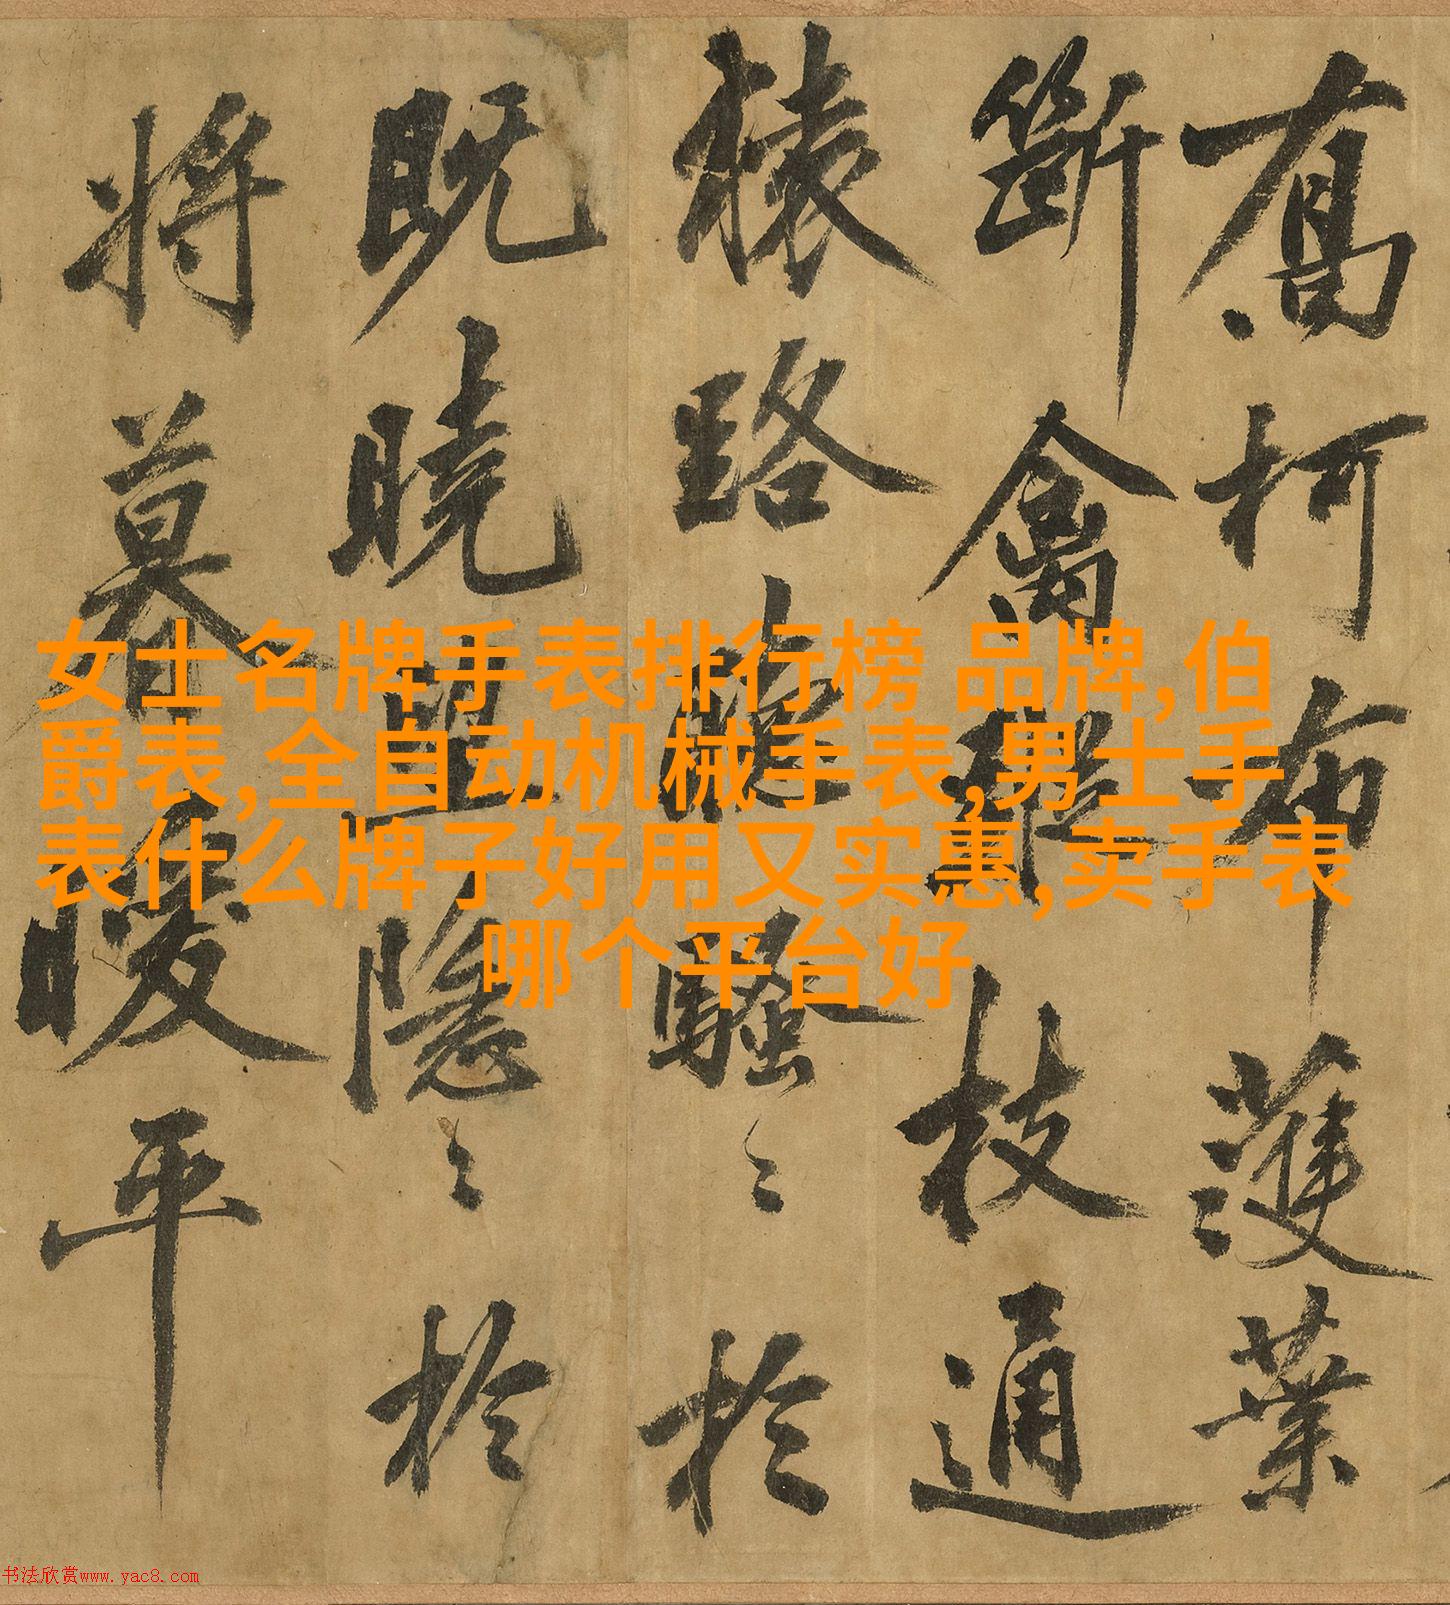 喬柯布濩葉
斷禽枝通
猿路騷〻於
既曉隱〻於
將暮暖平
女士名牌手表排行榜 品牌,伯
爵表,全自动机械手表,男士手
表什么牌子好用又实惠,卖手表
哪个平台好
书法欣赏www.yac8.com